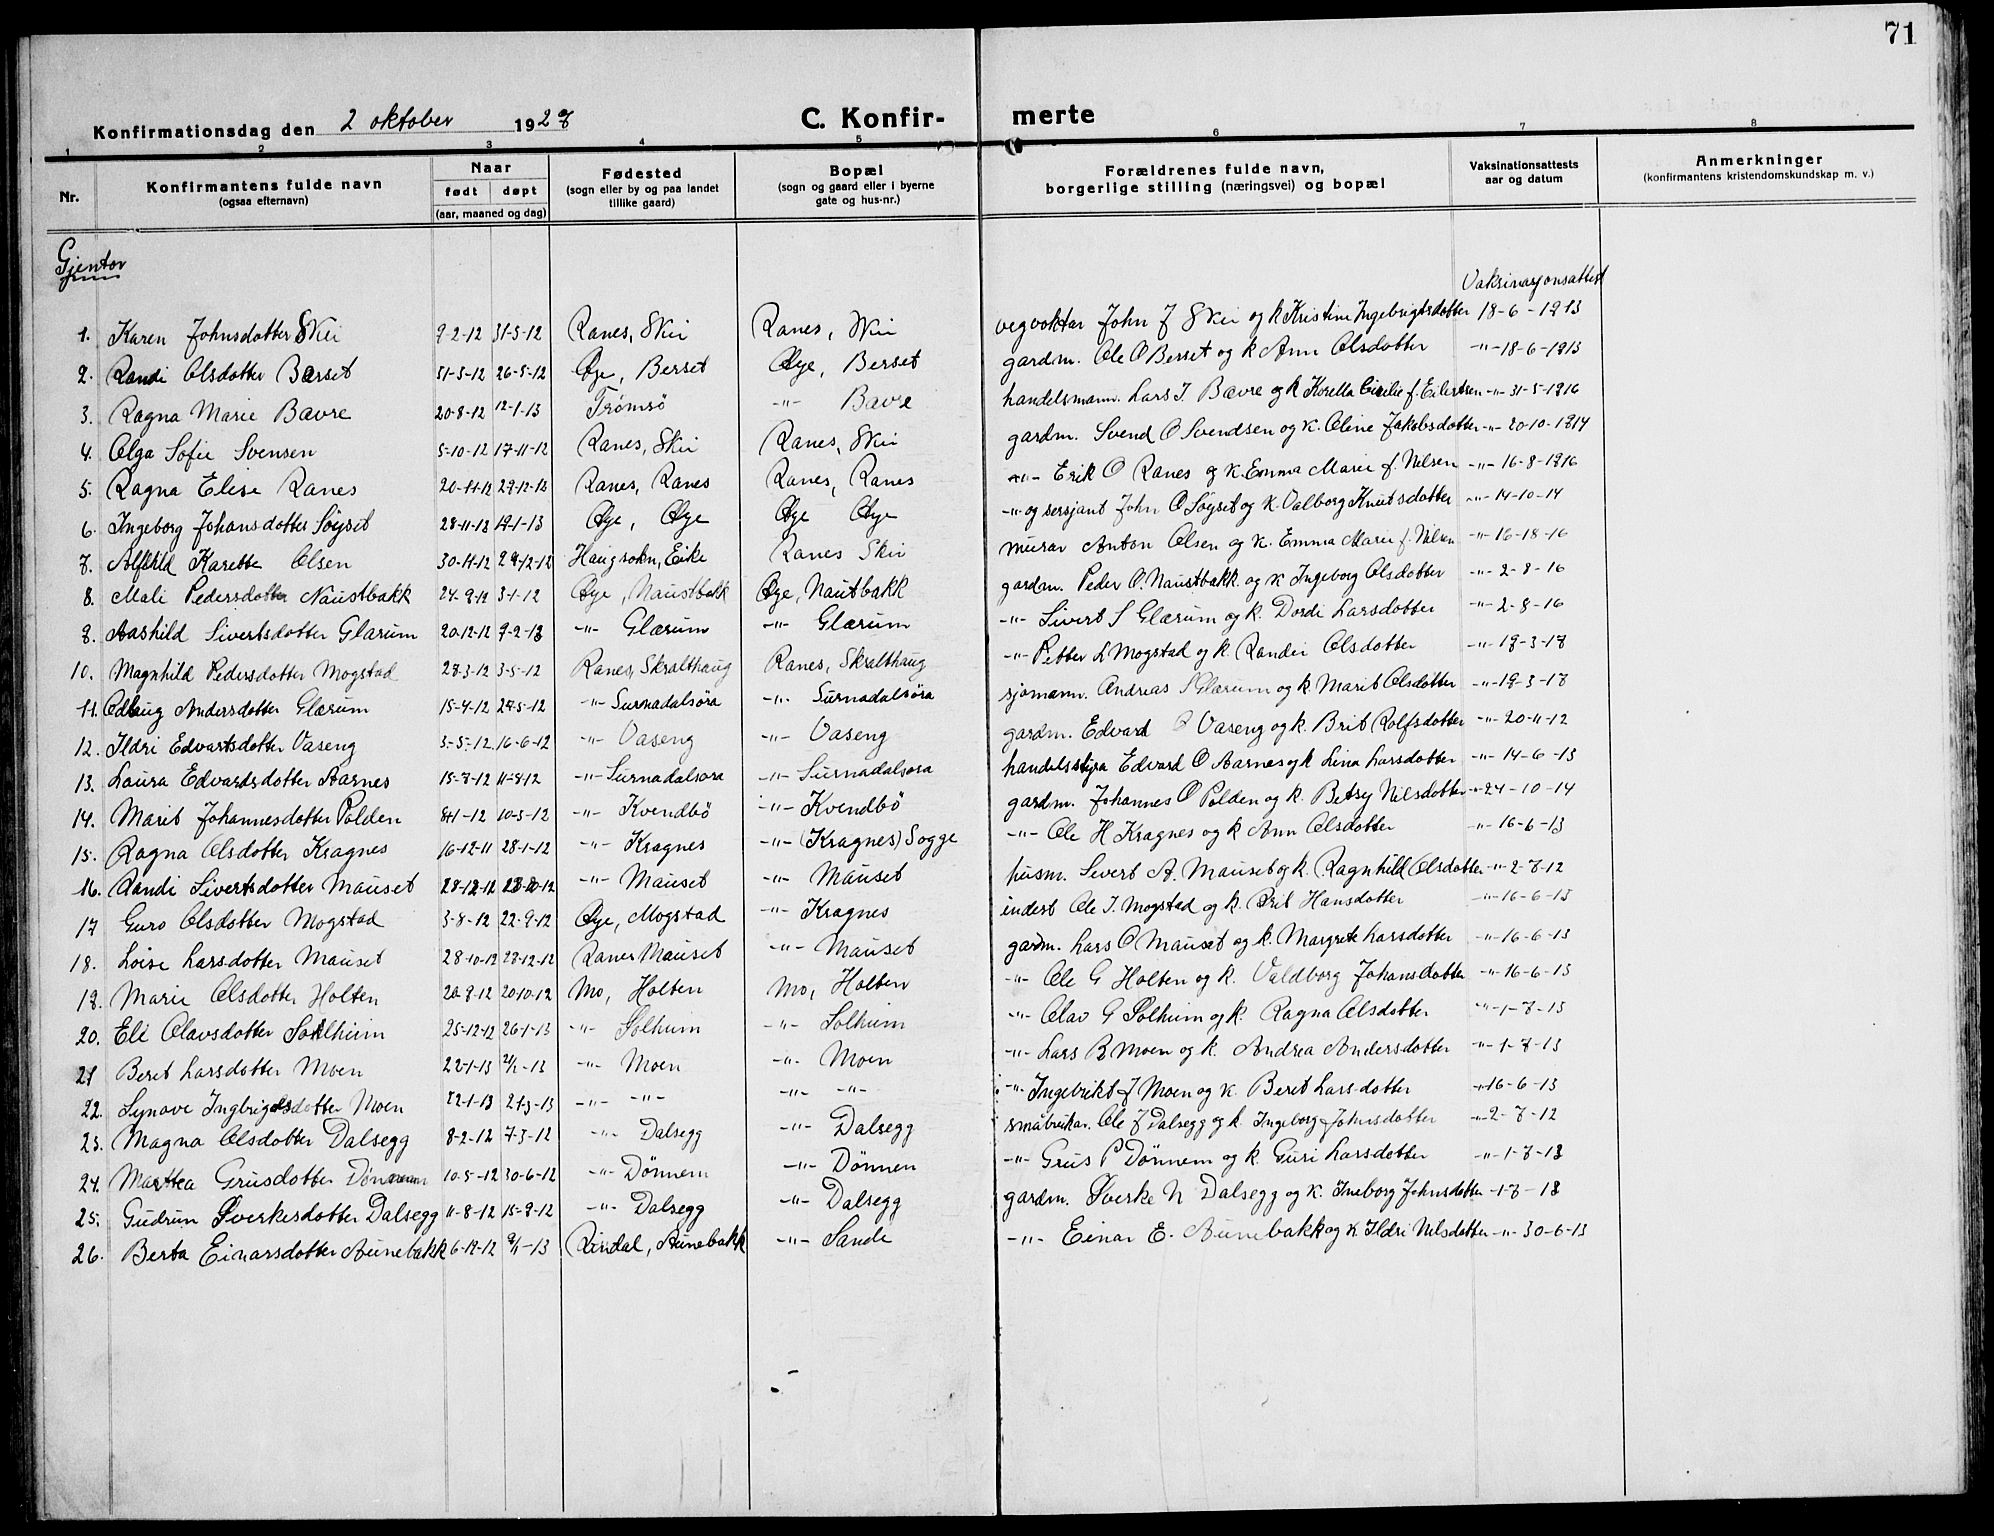 71
Konfirmationsdag den 2 oktober 1927 C. Konfir- merte
1 2 3 4 5 6 7 8
Nr. Konfirmantens fulde navn (ogsaa efternavn) Naar født døpt (aar, maaned og dag) Fødested (sogn eller by og paa landet tillike gaard) Bopæl (sogn og gaard eller i byerne gate og hus-nr.) Forældrenes fulde navn, borgerlige stilling (næringsvei) og bopæl Vaksinationsattests aar og datum Anmerkninger (konfirmantens kristendomskundskap m. v.)
Gjentor
Vaksinasjonsattest
1. Karen Johnsdotter Skei 9-2-12 31-5-12 Ranes, Skei Ranes, Skei vegvoktar John J Skei og k Kristine Ingebrigtsdotter 18-6-1913
2. Randi Olsdotter Berset 31-3-12 26-5-12 Øye, Berset Øye, Berset gardm. Ole O Berset og k Ann Olsdotter -"- 18-6-1913
3. Ragna Marie Bævre 20-8-12 12-1-13 Tromsö -"- Bævre handelsmann. Lars J. Bævre og k f. Eilertsen -"- 31-5-1916
4. Olga Sofie Svensen 5-10-12 17-11-12 Ranes, Skei Ranes, Skei gardm. Svend O Svendsen og k. Oline Jakobsdotter -"- 20-10-1914
5. Ragna Elise Ranes 20-11-12 29-12-12 Ranes, Ranes Ranes, Ranes -"- Erik O Ranes og k. Emma Marie f. Nilsen -"- 16-8-1916
6. Ingeborg Johansdotter Søyset 28-11-12 19-1-13 Øye, Øye Øye Øye -"- og sersjant John O Søyset og k. Valborg Knutsdotter -"- 14-10-14
7. Alfhild Karette Olsen 30-11-12 29-12-12 Haugsokn, Eike Ranes Skei murar Anton Olsen og k. Emma Marie f. Nilsen -"- 16-18-16
8. Mali Pedersdotter Naustbakk 24-9-12 3-1-12 Øye, Naustbakk Øye, Nautbakk gardm. Peder O. Naustbakk og k Ingeborg Olsdotter -"- 2-8-16
9. Aashild Sivertsdotter Glærum 20-12-12 9-2-13 -"- Glærum -"- Glærum -"- Sivert S Glærum og k. Dordi Larsdotter -"- 2-8-16
10. Magnhild Pedersdotter Mogstad 28-3-12 3-5-12 Ranes, Skralthaug Ranes, Skralthaug -"- Petter L Mogstad og k. Randi Olsdotter -"- 19-3-17
11. Odlaug Andersdotter Glærum 15-4-12 27-5-12 -"- Surnadalsöra -"- Surnadalsöra sjømann. Andreas S Glærum og k. Marit Olsdotter -"- 19-3-17
12. Ildri Edvartsdotter Vaseng 3-5-12 16-6-12 -"- Vaseng -"- Vaseng gardm. Edvard Vaseng og k. Brit Rolfsdotter -"- 20-11-12
13. Laura Edvardsdotter Aarnes 15-7-12 11-8-12 -"- Surnadalsøra -"- Surnadalsøra handelsstyra Edvard O Aarnes og k Lina Larsdotter -"- 14-6-13
14. Marit Johannesdotter Polden 8-1-12 10-3-12 -"- Kvendbö -"- Kvendbö gardm. Johannes O Polden og k. Betsy Nilsdotter -"- 24-10-14
15. Ragna Olsdotter Kragnes 16-12-11 28-1-12 -"- Kragnes -"- (Kragnes) Sogge -"- Ole H Kragnes og k Ann Olsdotter -"- 16-6-13
16. Randi Sivertsdotter Mauset 28-12-12 -"- Mauset -"- Mauset husm. Sivert A. Mauset og k. Ragnhild Olsdotter -"- 2-7-12
17 Guro Olsdotter Mogstad 3-8-12 22-9-12 Øye, Mogstad -"- Kragnes inderst Ole J. Mogstad og k. Brit Hansdotter -"- 16-6-13
18. Loise Larsdotter Mauset 28-10-12 28-12-12 Ranes Mauset -"- Mauset gardm. Lars O Mauset og k. Margrete Larsdotter -"- 16-6-13
19. Marie Olsdotter Holten 20-9-12 20-10-12 Mo, Holten Mo, Holten -"- Ole G Holten og k. Valdborg Johansdotter -"- 16-6-13
20. Eli Olavsdotter Solheim 25-12-12 26-1-13 -"- Solheim -"- Solheim -"- Olav G Solheim og k. Ragna Olsdotter -"- 1-7-13
21 Beret Larsdotter Moen 22-1-13 2/1-13 -"- Moen -"- Moen -"- Lars B Moen og k. Andrea Andersdotter -"- 1-7-13
22. Synøve Ingbrigtsdotter Moen 22-1-13 21-3-13 -"- -"- -"- -"- -"- Ingebrikt J Moen og k. Beret Larsdotter -"- 16-6-13
23. Magna Olsdotter Dalsegg 8-2-12 7-3-12 -"- Dalsegg -"- Dalsegg småbrukar. Ole J Dalsegg og k. Ingeborg Johnsdotter -"- 2-7-12
24. Marttea Grusdotter Dønnem 10-5-12 30-6-12 -"- Dönnem -"- Dönnen -"- Grus P Dönnem og k. Guri Larsdotter -"- 1-7-13
25. Gudrun Sverkesdotter Dalsegg 11-8-12 15-9-12 -"- Dalsegg -"- Dalsegg gardm. Sverke N Dalsegg og k. Ineborg Johnsdotter -1-7-18
26. Berta Einarsdotter Aunebakk 6-12-12 9/11-13 Rindal, Aunebakk -"- Sande -"- Einar E. Aunebakk og k Ildri Nilsdotter -"- 30-6-13